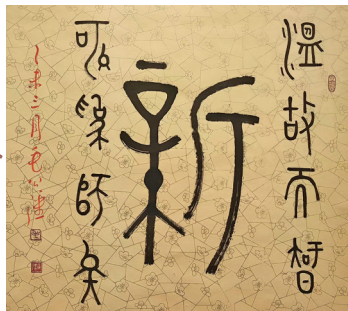 溫故而智
新
可以為師矣
乙未三月